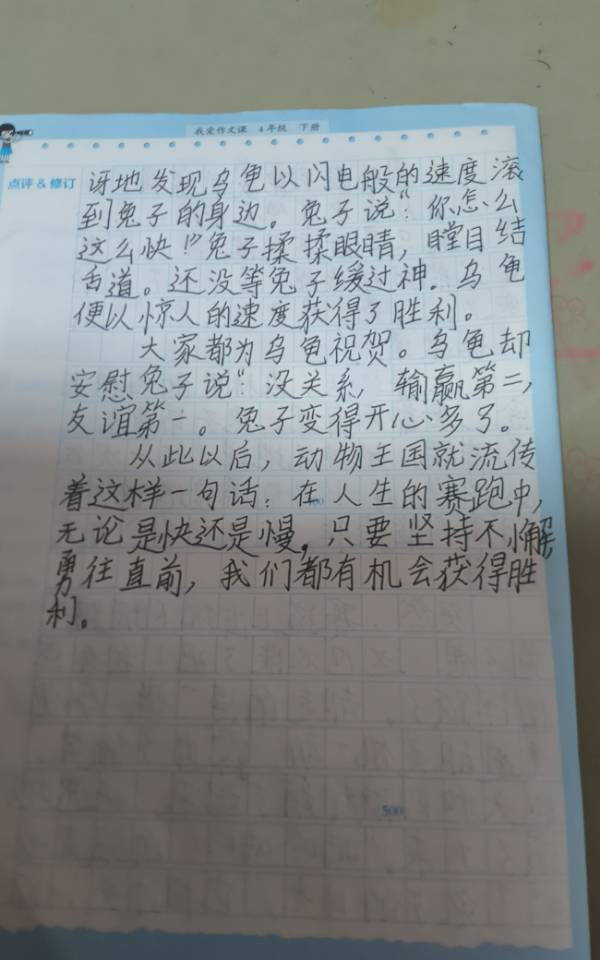 我爱作文课 4年级 下册
点评 & 修订
讶地发现乌龟以闪电般的速度滚
到兔子的身边。兔子说“:你怎么
这么快!”兔子揉揉眼睛,瞠目结
舌道。还没等兔子缓过神.乌龟
便以惊人的速度获得了胜利。
大家都为乌龟祝贺。乌龟却
安慰兔子说“:没关系,输赢第二,
友谊第一。兔子变得开心多了。
从此以后,动物王国就流传
着这样一句话:在人生的赛跑中,
无论是快还是慢,只要坚持不懈,
勇往直前,我们都有机会获得胜
利。
500